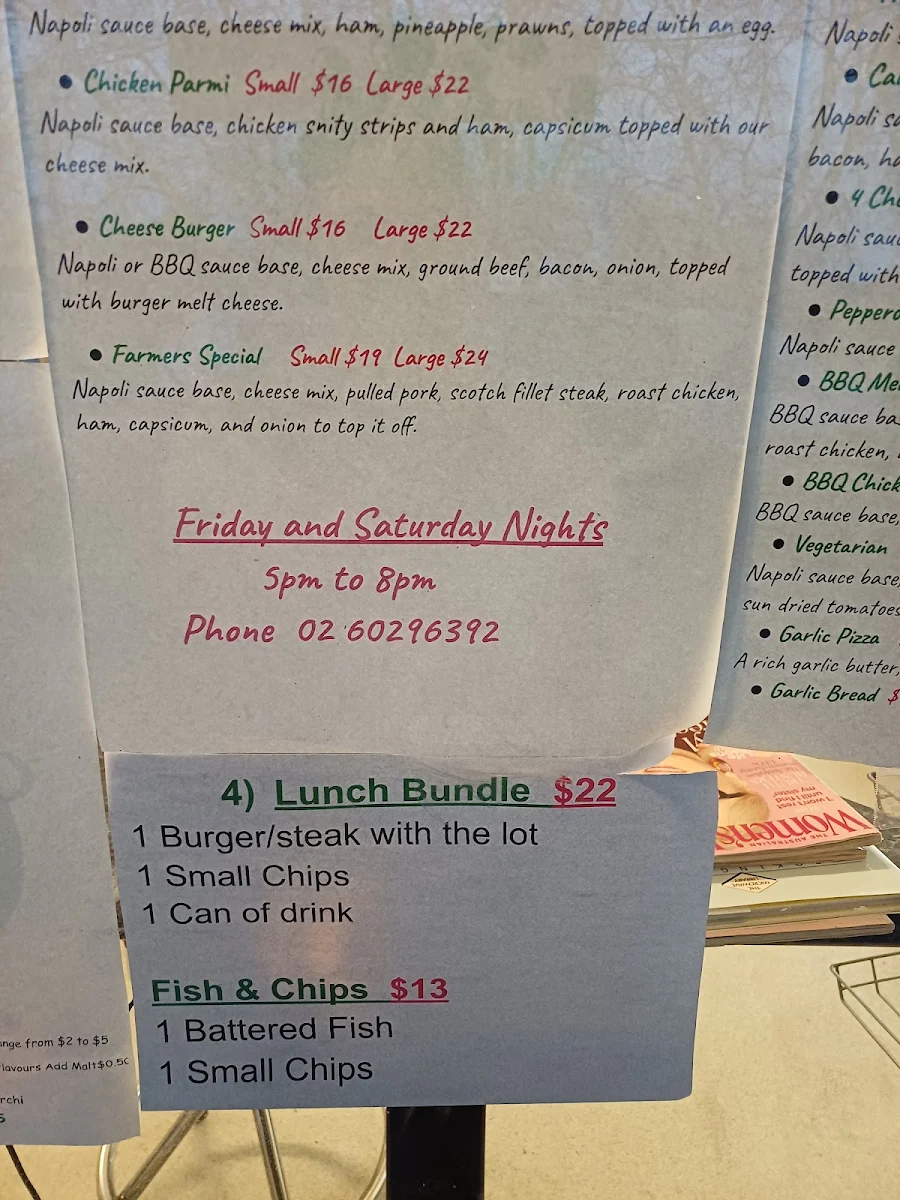 Napoli sauce base, cheese mix, ham, pineapple, prawns, topped with an egg.
• Chicken Parmi Small $16 Large $22
Napoli sauce base, chicken snity strips and ham, capsicum topped with our
cheese mix.
• Cheese Burger Small $16 Large $22
Napoli or BBQ sauce base, cheese mix, ground beef, bacon, onion, topped
with burger melt cheese.
• Farmers Special Small $19 Large $24
Napoli sauce base, cheese mix, pulled pork, scotch fillet steak, roast chicken,
ham, capsicum, and onion to top it off.
Friday and Saturday Nights
5pm to 8pm
Phone 02 60296392
Napoli
•
Napoli
bacon,
• 4
Napoli
topped with
•
Napoli sauce
• BBQ
BBQ sauce
roast chicken,
• BBQ
BBQ sauce base,
• Vegetarian
Napoli sauce base,
sun dried tomatoes
• Garlic Pizza
A rich garlic butter,
• Garlic Bread $
4) Lunch Bundle $22
1 Burger/steak with the lot
1 Small Chips
1 Can of drink
Fish & Chips $13
1 Battered Fish
1 Small Chips
from $2 to $5
Add Malt $0.50
THE AUSTRALIAN
Women's
I won't rest
until I find
my sister